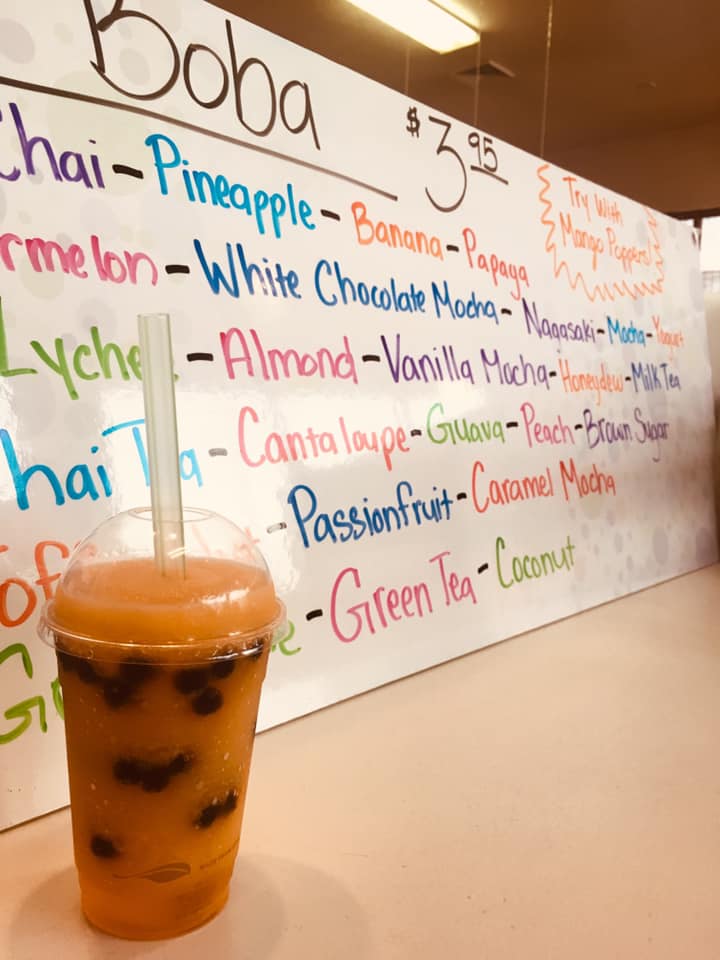 Boba $3.95
Try With
Mango Poppers!
Chai - Pineapple - Banana - Papaya
rmelon - White Chocolate Mocha - Nagasaki - Mocha - Yogurt
Lychee - Almond - Vanilla Mocha - Honeydew - Milk Tea
hai Tea - Cantaloupe - Guava - Peach - Brown Sugar
- Passionfruit - Caramel Mocha
- Green Tea - Coconut